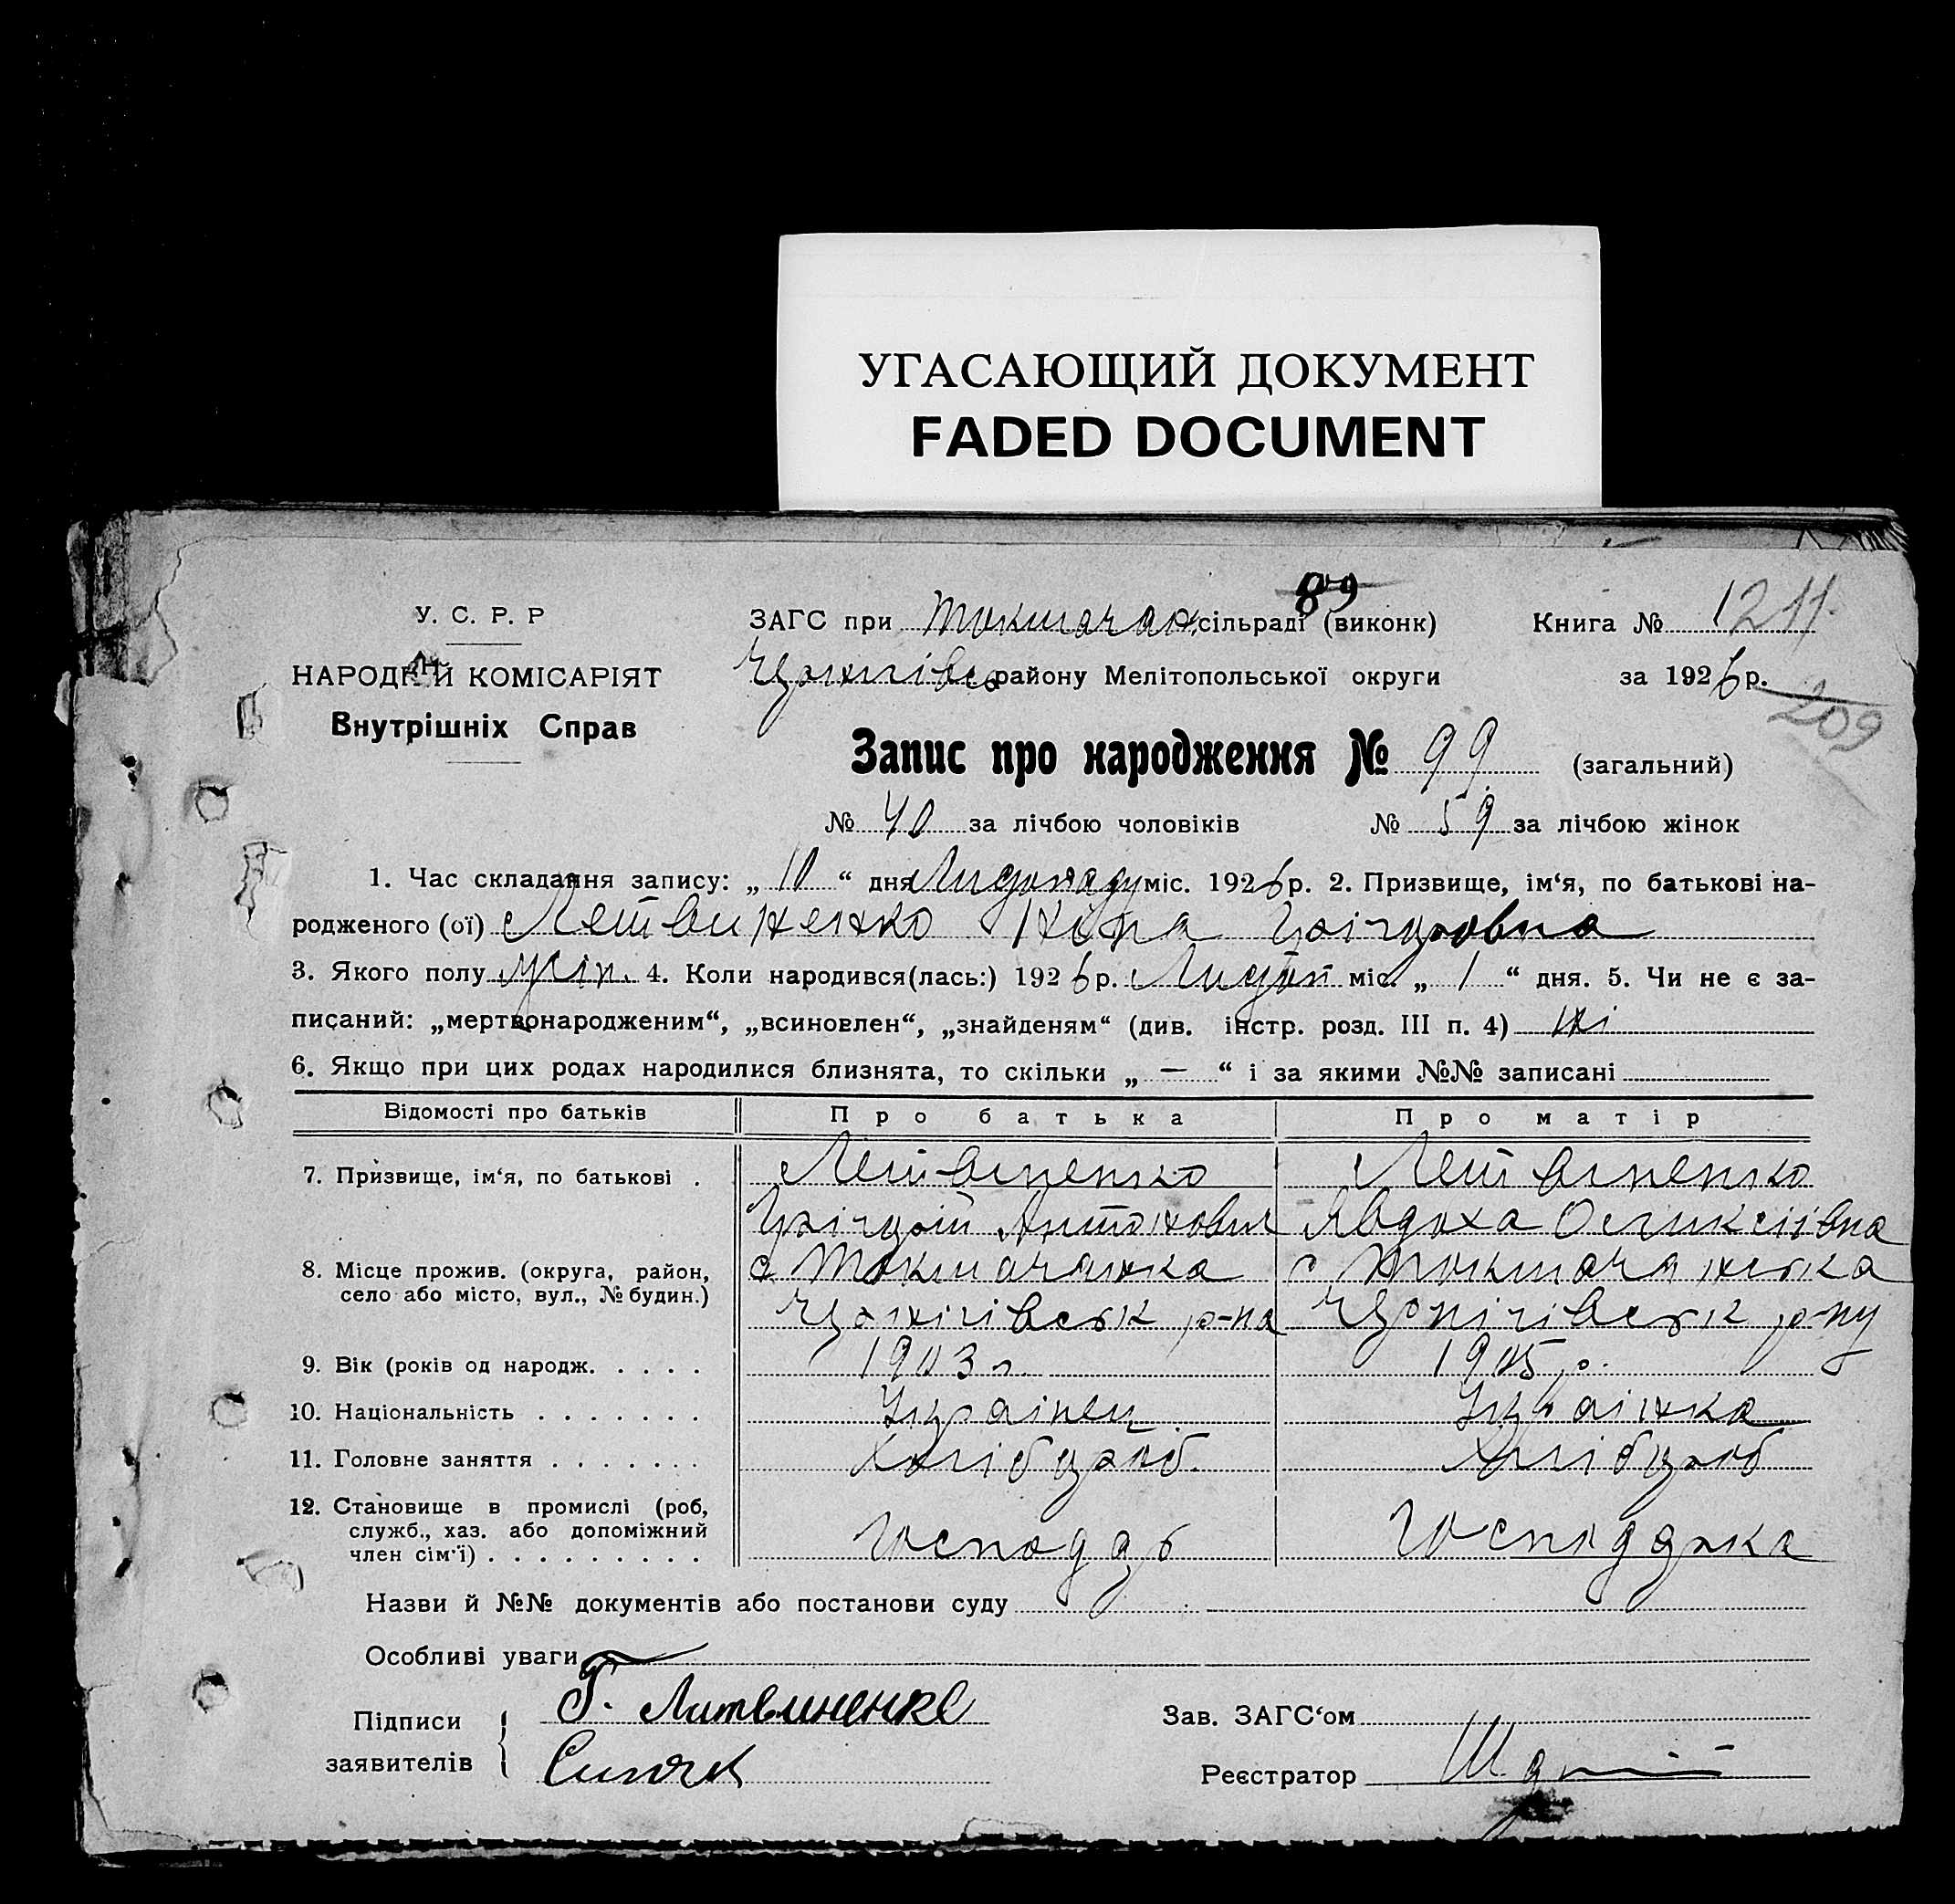 УГАСАЮЩИЙ ДОКУМЕНТ
FADED DOCUMENT
89
У. С. Р. Р
ЗАГС при Токмачан. сільраді (виконк)
Книга № 1211
НАРОДНИЙ КОМІСАРІЯТ
Чернігівсь району Мелітопольської округи
за 1926 р.
209
Внутрішніх Справ
Запис про народження № 99 (загальний)
№ 40 за лічбою чоловіків № 59 за лічбою жінок
1. Час складання запису: „ 10 “ дня Лидопаду міс. 1926 р. 2. Призвище, ім‘я, по батькові на-
родженого (ої) Летвиненко Ніна Грігоровна
3. Якого полу жін. 4. Коли народився(лась:) 1926 р. Лидоп міс. „ 1 “ дня. 5. Чи не є за-
писаний: „мертвонародженим“, „всиновлен“, „знайденям“ (див. інстр. розд. III п. 4) ні
6. Якщо при цих родах народилися близнята, то скільки „ — “ і за якими №№ записані
Відомості про батьків Про батька Про матір
7. Призвище, ім‘я, по батькові . Летвиненко Летвиненко
Грігорій Антонович Явдоха Олексіівна
8. Місце прожив. (округа, район, с Токмачанка с Токмачанська
село або місто, вул., № будин.) Чернігівськ р-на Чернігівськ р-ну
9. Вік (років од народж. . . . . 1903 р. 1905 р.
10. Національність . . . . . . . Украінец Украінка
11. Головне заняття . . . . . . . Хлібороб. Хлібороб
12. Становище в промислі (роб,
служб., хаз. або допоміжний Господарь Господарка
член сім‘ї) . . . . . . . . .
Назви й №№ документів або постанови суду
Особливі уваги
Підписи Г. Литвиненко Зав. ЗАГС‘ом
заявителів Реєстратор